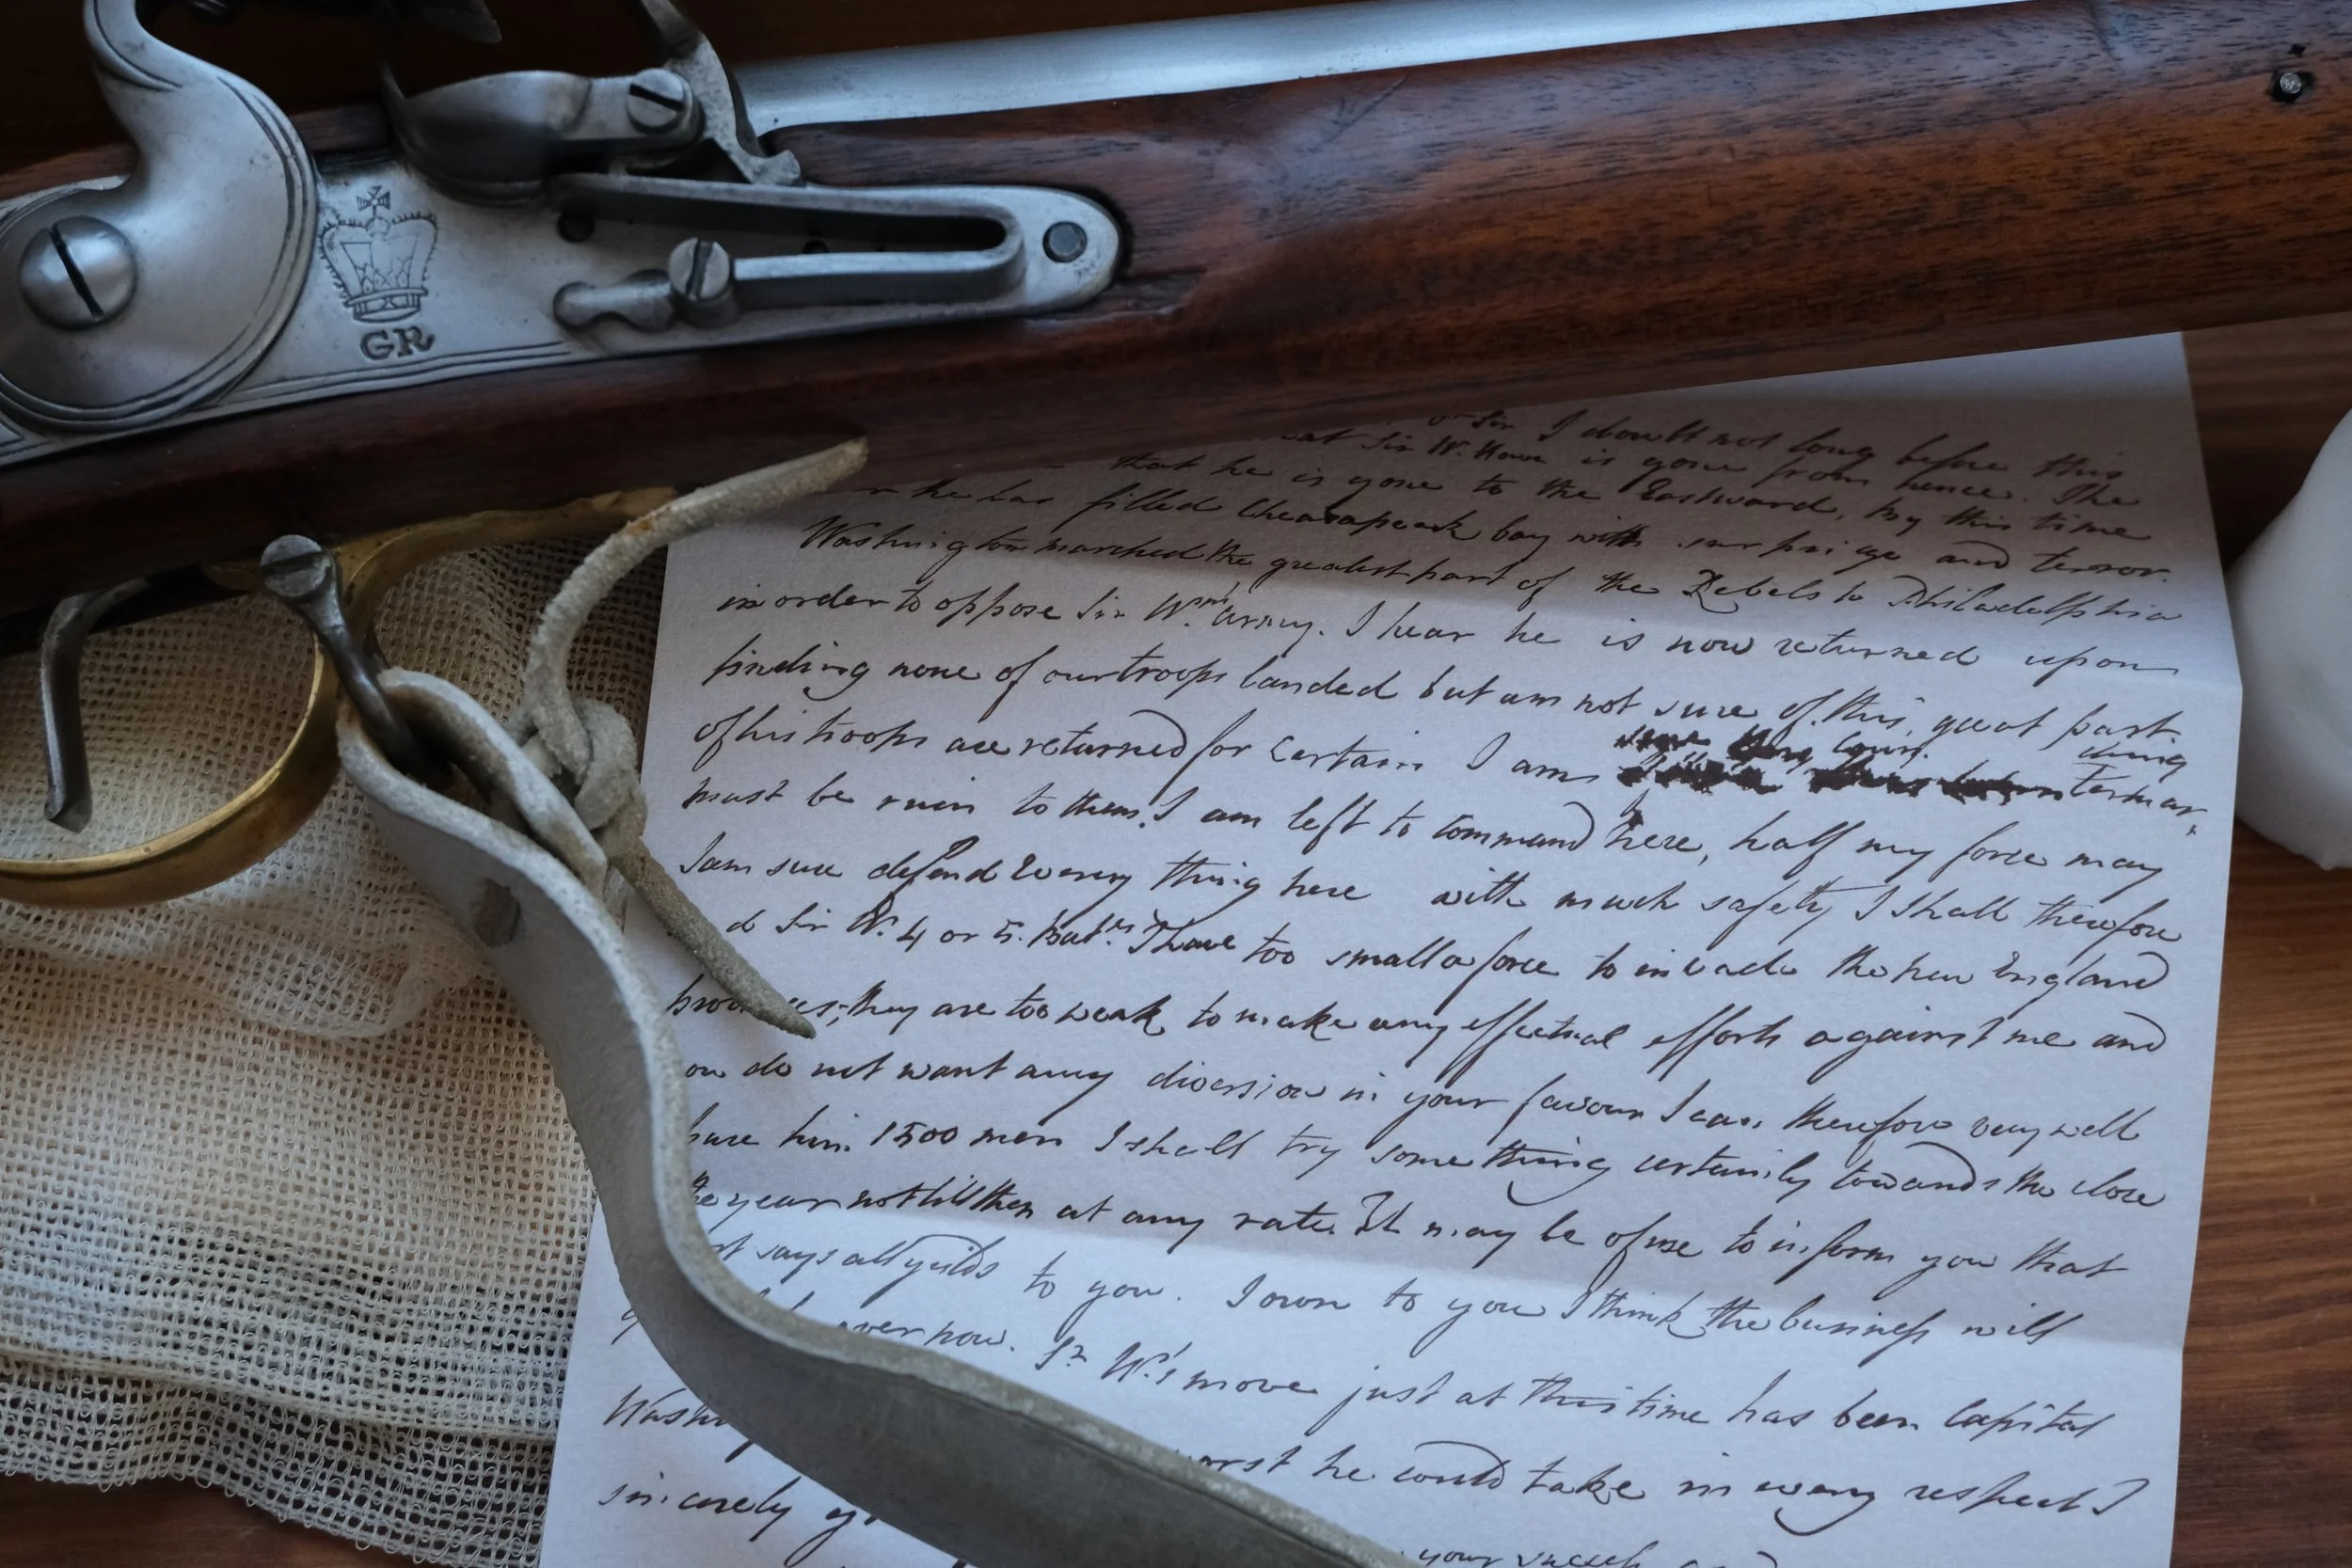 GR
Sir I doubt not long before this
Sir W. Howe is gone from hence. The
that he is gone to the Eastward, by this time
he has filled Cheasapeak bay with surprize and terror.
Washington marched the greatest part of the Rebels to Philadelphia
in order to oppose Sir Wm's army. I hear he is now returned upon
finding none of our troops landed but am not sure of this, great part
of his troops are returned for certain I am sure this
must be ruin to them. I am left to command here, half my force may
I am sure defend every thing here with much safety I shall therefore
Sir W. 4 or 5. I have too small a force to invade the new England
they are too weak to make any effectual efforts against me and
do not want any diversion in your favour I can therefore very well
him 1500 men I shall try something certainly towards the close
year not till then at any rate. It may be of use to inform you that
says all yeilds to you. I own to you I think the business will
over now. Sr. W's move just at this time has been Capital
worst he could take in every respect I
sincerely
your